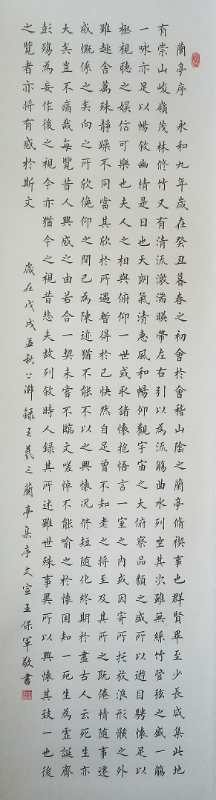 蘭亭序 永和九年歲在癸丑暮春之初會於會稽山陰之蘭亭脩禊事也群賢畢至少長咸集此地
有崇山峻嶺茂林修竹又有清流激湍映帶左右引以為流觴曲水列坐其次雖無絲竹管弦之盛一觴
一咏亦足以暢敘幽情是日也天朗氣清惠風和暢仰觀宇宙之大俯察品類之盛所以遊目騁懷足以
極視聽之娛信可樂也夫人之相與俯仰一世或取諸懷抱悟言一室之內或因寄所托放浪形骸之外
雖趣舍萬殊靜躁不同當其欣於所遇暫得於己快然自足曾不知老之將至及其所之既倦情隨事遷
感慨係之矣向之所欣俛仰之間已為陳迹猶不能不以之興懷況修短隨化終期於盡古人云死生亦
大矣豈不痛哉每覽昔人興感之由若合一契未嘗不臨文嗟悼不能喻之於懷固知一死生為虛誕齊
彭殤為妄作後之視今亦猶今之視昔悲夫故列敘時人錄其所述雖世殊事異所以興懷其致一也後
之覽者亦將有感於斯文 歲在戊戌孟秋錄王羲之蘭亭集序文宣王保軍敬書